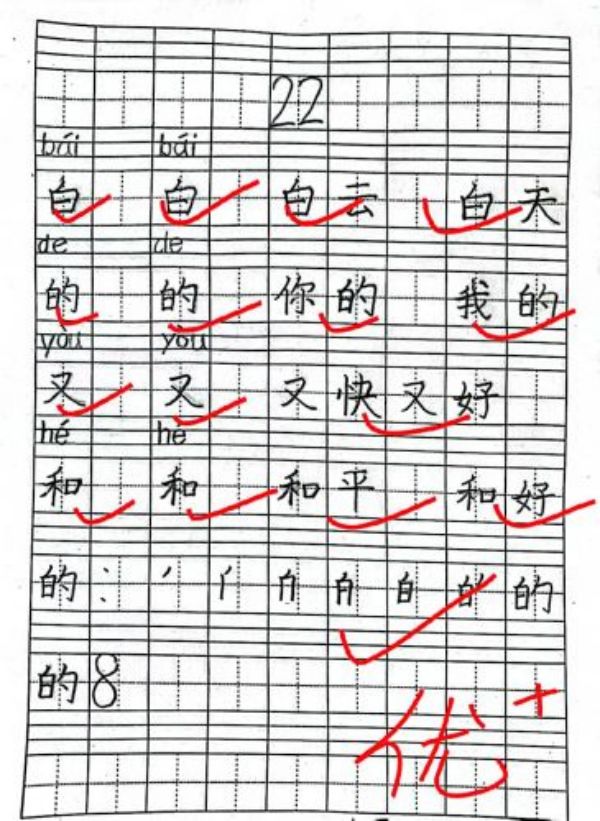 22
bái bái
白 白 白云 白天
de de
的 的 你的 我的
yòu yòu
又 又 又快又好
hé hé
和 和 和平 和好
的：丿 亻 白 的
的8
优+